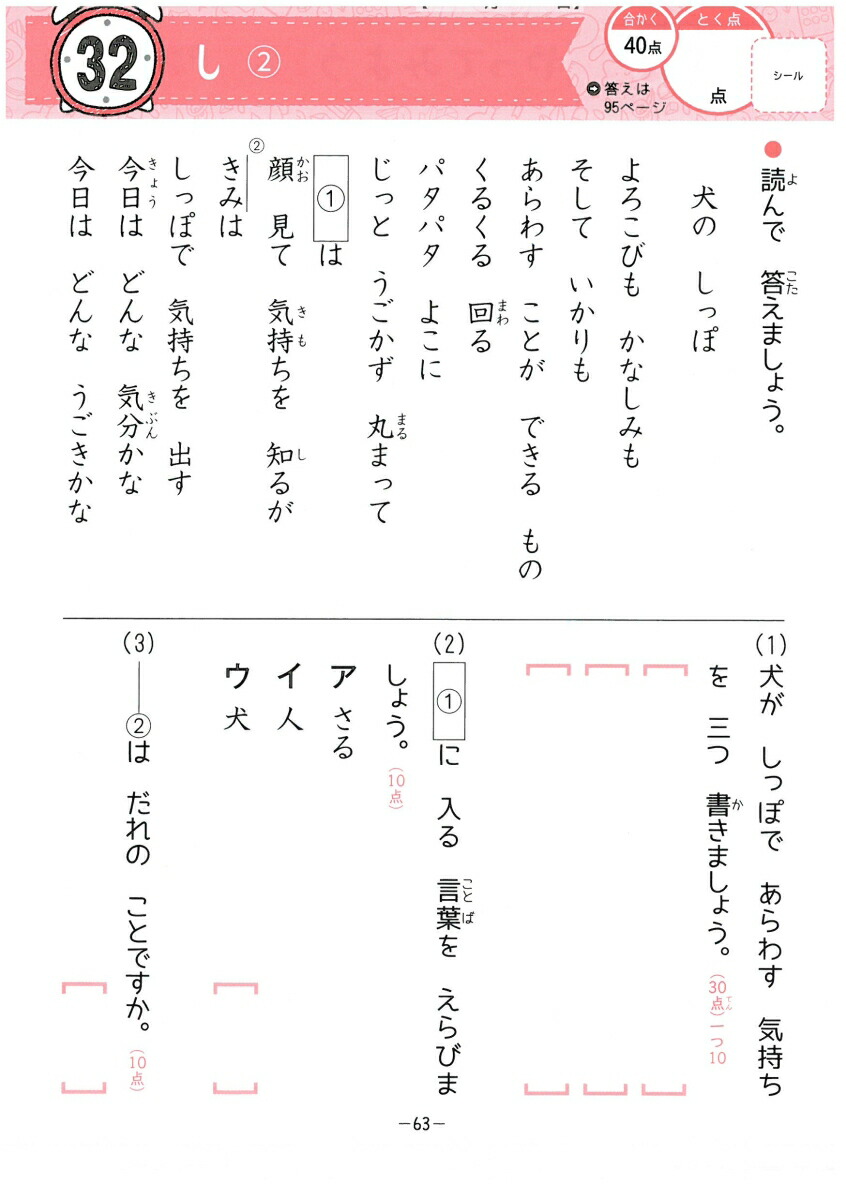 32
し ②
合かく
40点
とく点
点
シール
答えは
95ページ
●読んで 答えましょう。
犬の しっぽ
よろこびも かなしみも
そして いかりも
あらわす ことが できる もの
くるくる 回る
パタパタ よこに
じっと うごかず 丸まって
①は
顔 見て 気持ちを 知るが
②きみは
しっぽで 気持ちを 出す
今日は どんな 気分かな
今日は どんな うごきかな
(1)犬が しっぽで あらわす 気持ち
を 三つ 書きましょう。(30点)一つ10
(2)①に 入る 言葉を えらびま
しょう。(10点)
ア さる
イ 人
ウ 犬
(3)――②は だれの ことですか。(10点)
—63—